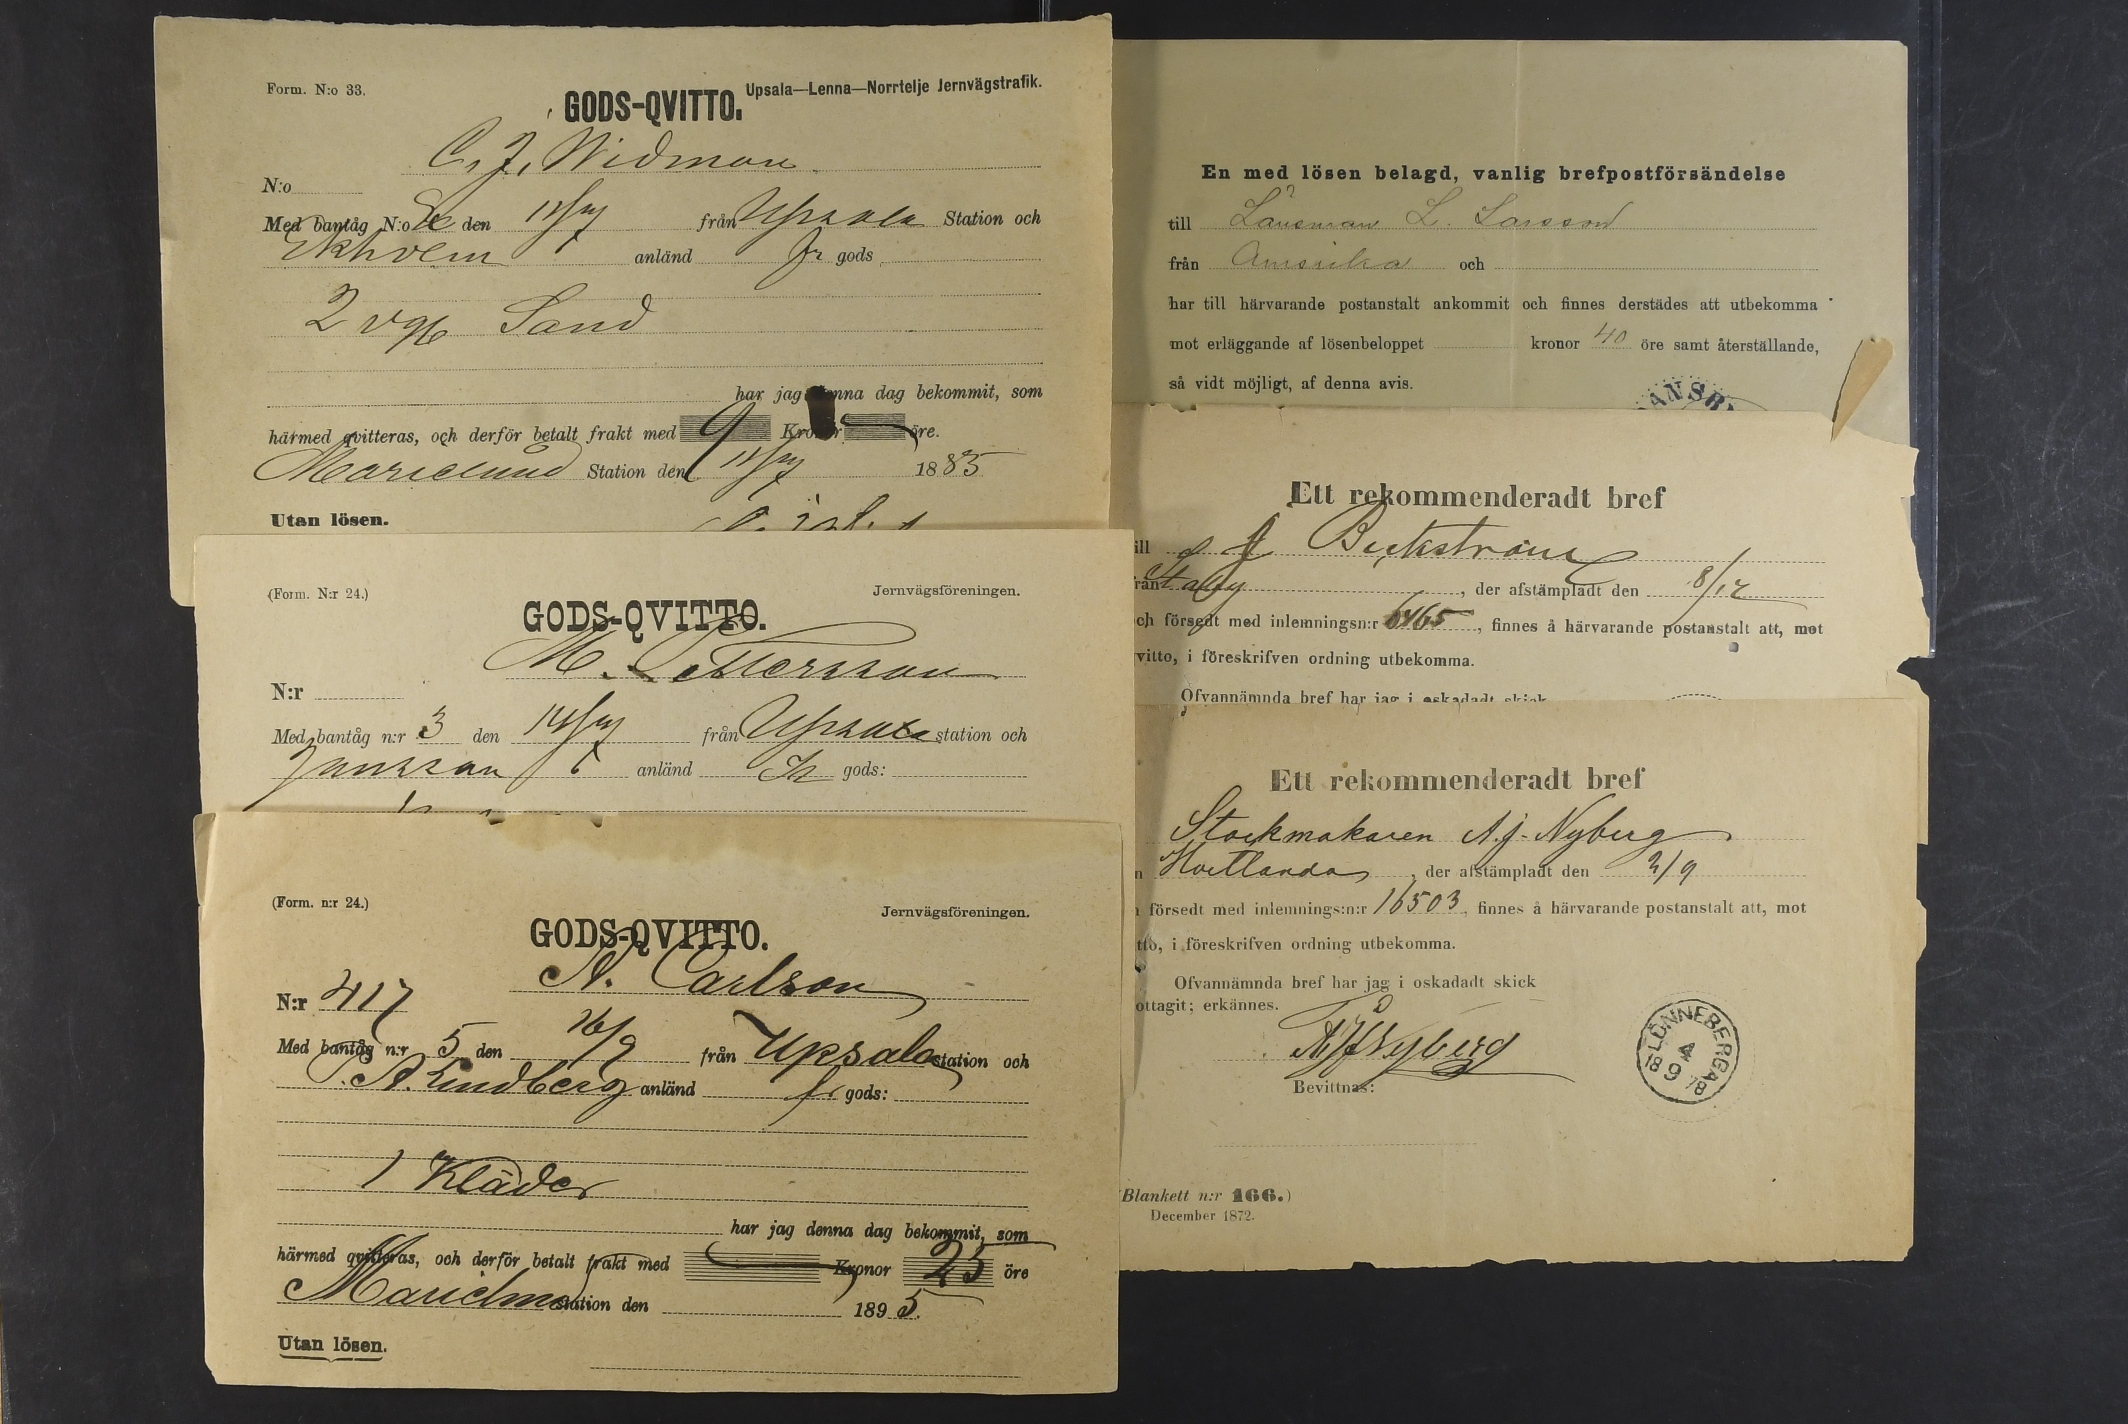 Form. N:o 33.
GODS-QVITTO.
Upsala—Lenna—Norrtelje Jernvägstrafik.
C. J. Widman
N:o
Med bantåg N:o den från Upsala Station och
Ekholm anländ gods
2 Sand
har jag denna dag bekommit, som
härmed qvitteras, och derför betalt frakt med 9 Kronor öre.
Marielund Station den 1885
Utan lösen.
(Form. N:r 24.)
Jernvägsföreningen.
GODS-QVITTO.
M. Pettersson
N:r
Med bantåg n:r 3 den från Upsala station och
Jansson anländ gods:
(Form. n:r 24.)
Jernvägsföreningen.
GODS-QVITTO.
A. Carlson
N:r 417
Med bantåg n:r 5 den 26/9 från Upsala station och
P. A. Lindberg anländ gods:
1 Kläder
har jag denna dag bekommit, som
härmed qvitteras, och derför betalt frakt med Kronor 25 öre
Marielund station den 1895.
Utan lösen.
En med lösen belagd, vanlig brefpostförsändelse
till Länsman L. Larsson
från Amerika och
har till härvarande postanstalt ankommit och finnes derstädes att utbekomma
mot erläggande af lösenbeloppet kronor 40 öre samt återställande,
så vidt möjligt, af denna avis.
Ett rekommenderadt bref
ill
, der afstämpladt den 8/12
ch försedt med inlemningsn:r 6465, finnes å härvarande postanstalt att, mot
vitto, i föreskrifven ordning utbekomma.
Ofvannämnda bref har jag i oskadadt skick
Ett rekommenderadt bref
Stockmakaren A. J. Nyberg
n Hvetlanda, der afstämpladt den 2/9
försedt med inlemnings:n:r 16503, finnes å härvarande postanstalt att, mot
tto, i föreskrifven ordning utbekomma.
Ofvannämnda bref har jag i oskadadt skick
ottagit; erkännes.
A J Nyberg
Bevittnas:
LÖNNEBERGA
4
18 9 78
(Blankett n:r 166.)
December 1872.